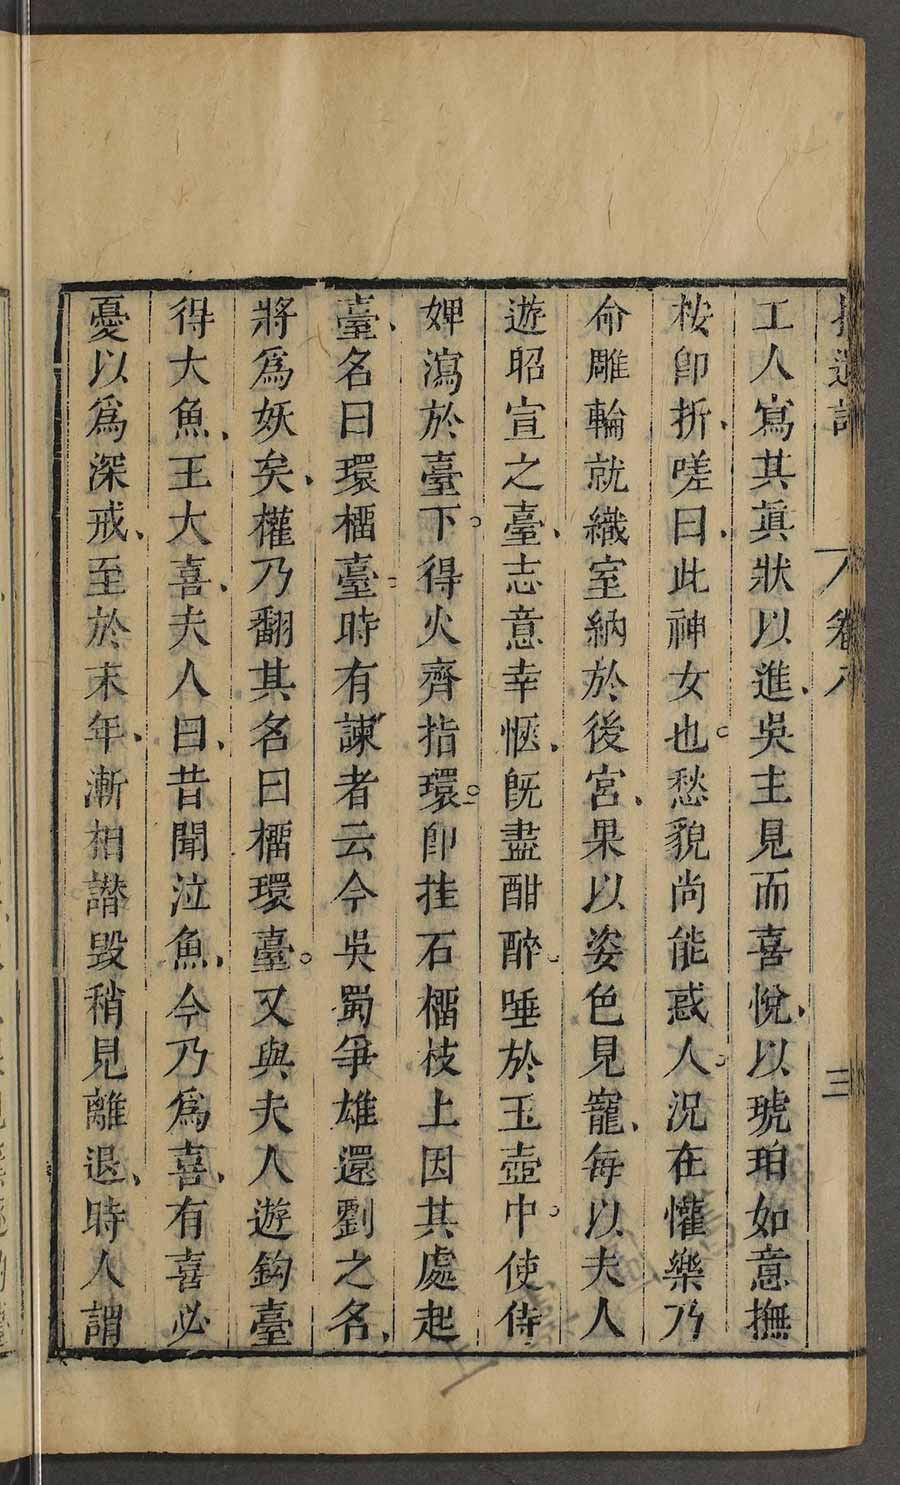 拾遺記 卷八 三
工人寫其眞狀以進吳主見而喜悅以琥珀如意撫
桉卽折嗟曰此神女也愁貌尚能惑人況在懽樂乃
命雕輪就織室納於後宮果以姿色見寵每以夫人
遊昭宣之臺志意幸愜旣盡酣醉唾於玉壺中使侍
婢瀉於臺下得火齊指環卽挂石橊枝上因其處起
臺名曰環橊臺時有諫者云今吳蜀爭雄還劉之名
將爲妖矣權乃翻其名曰橊環臺又與夫人遊釣臺
得大魚王大喜夫人曰昔聞泣魚今乃爲喜有喜必
憂以爲深戒至於末年漸相譖毀稍見離退時人謂